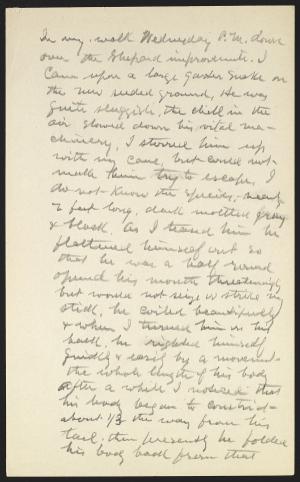 In my walk Wednesday P.M. down
over the Shepard improvements. I
Came upon a large garter snake on
the new seeded ground, He was
quite sluggish, the chill in the
air slowed down his vital ma-
chinery, I stirred him up
with my cane, but could not
make him try to escape, I
do not know the species, nearly
2 feet long, dark mottled gray
& black. As I teased him he
flattened himself out so
that he was a half round
opened his mouth threateningly
but would not seize or strike my
stick, he coiled beautifully
& when I turned him on his
back, he righted himself
quickly & easily by a movement
the whole length of his body
After a while I noticed that
his body began to constrict
about 1/3 the way from his
tail; then presently he folded
his body back from that